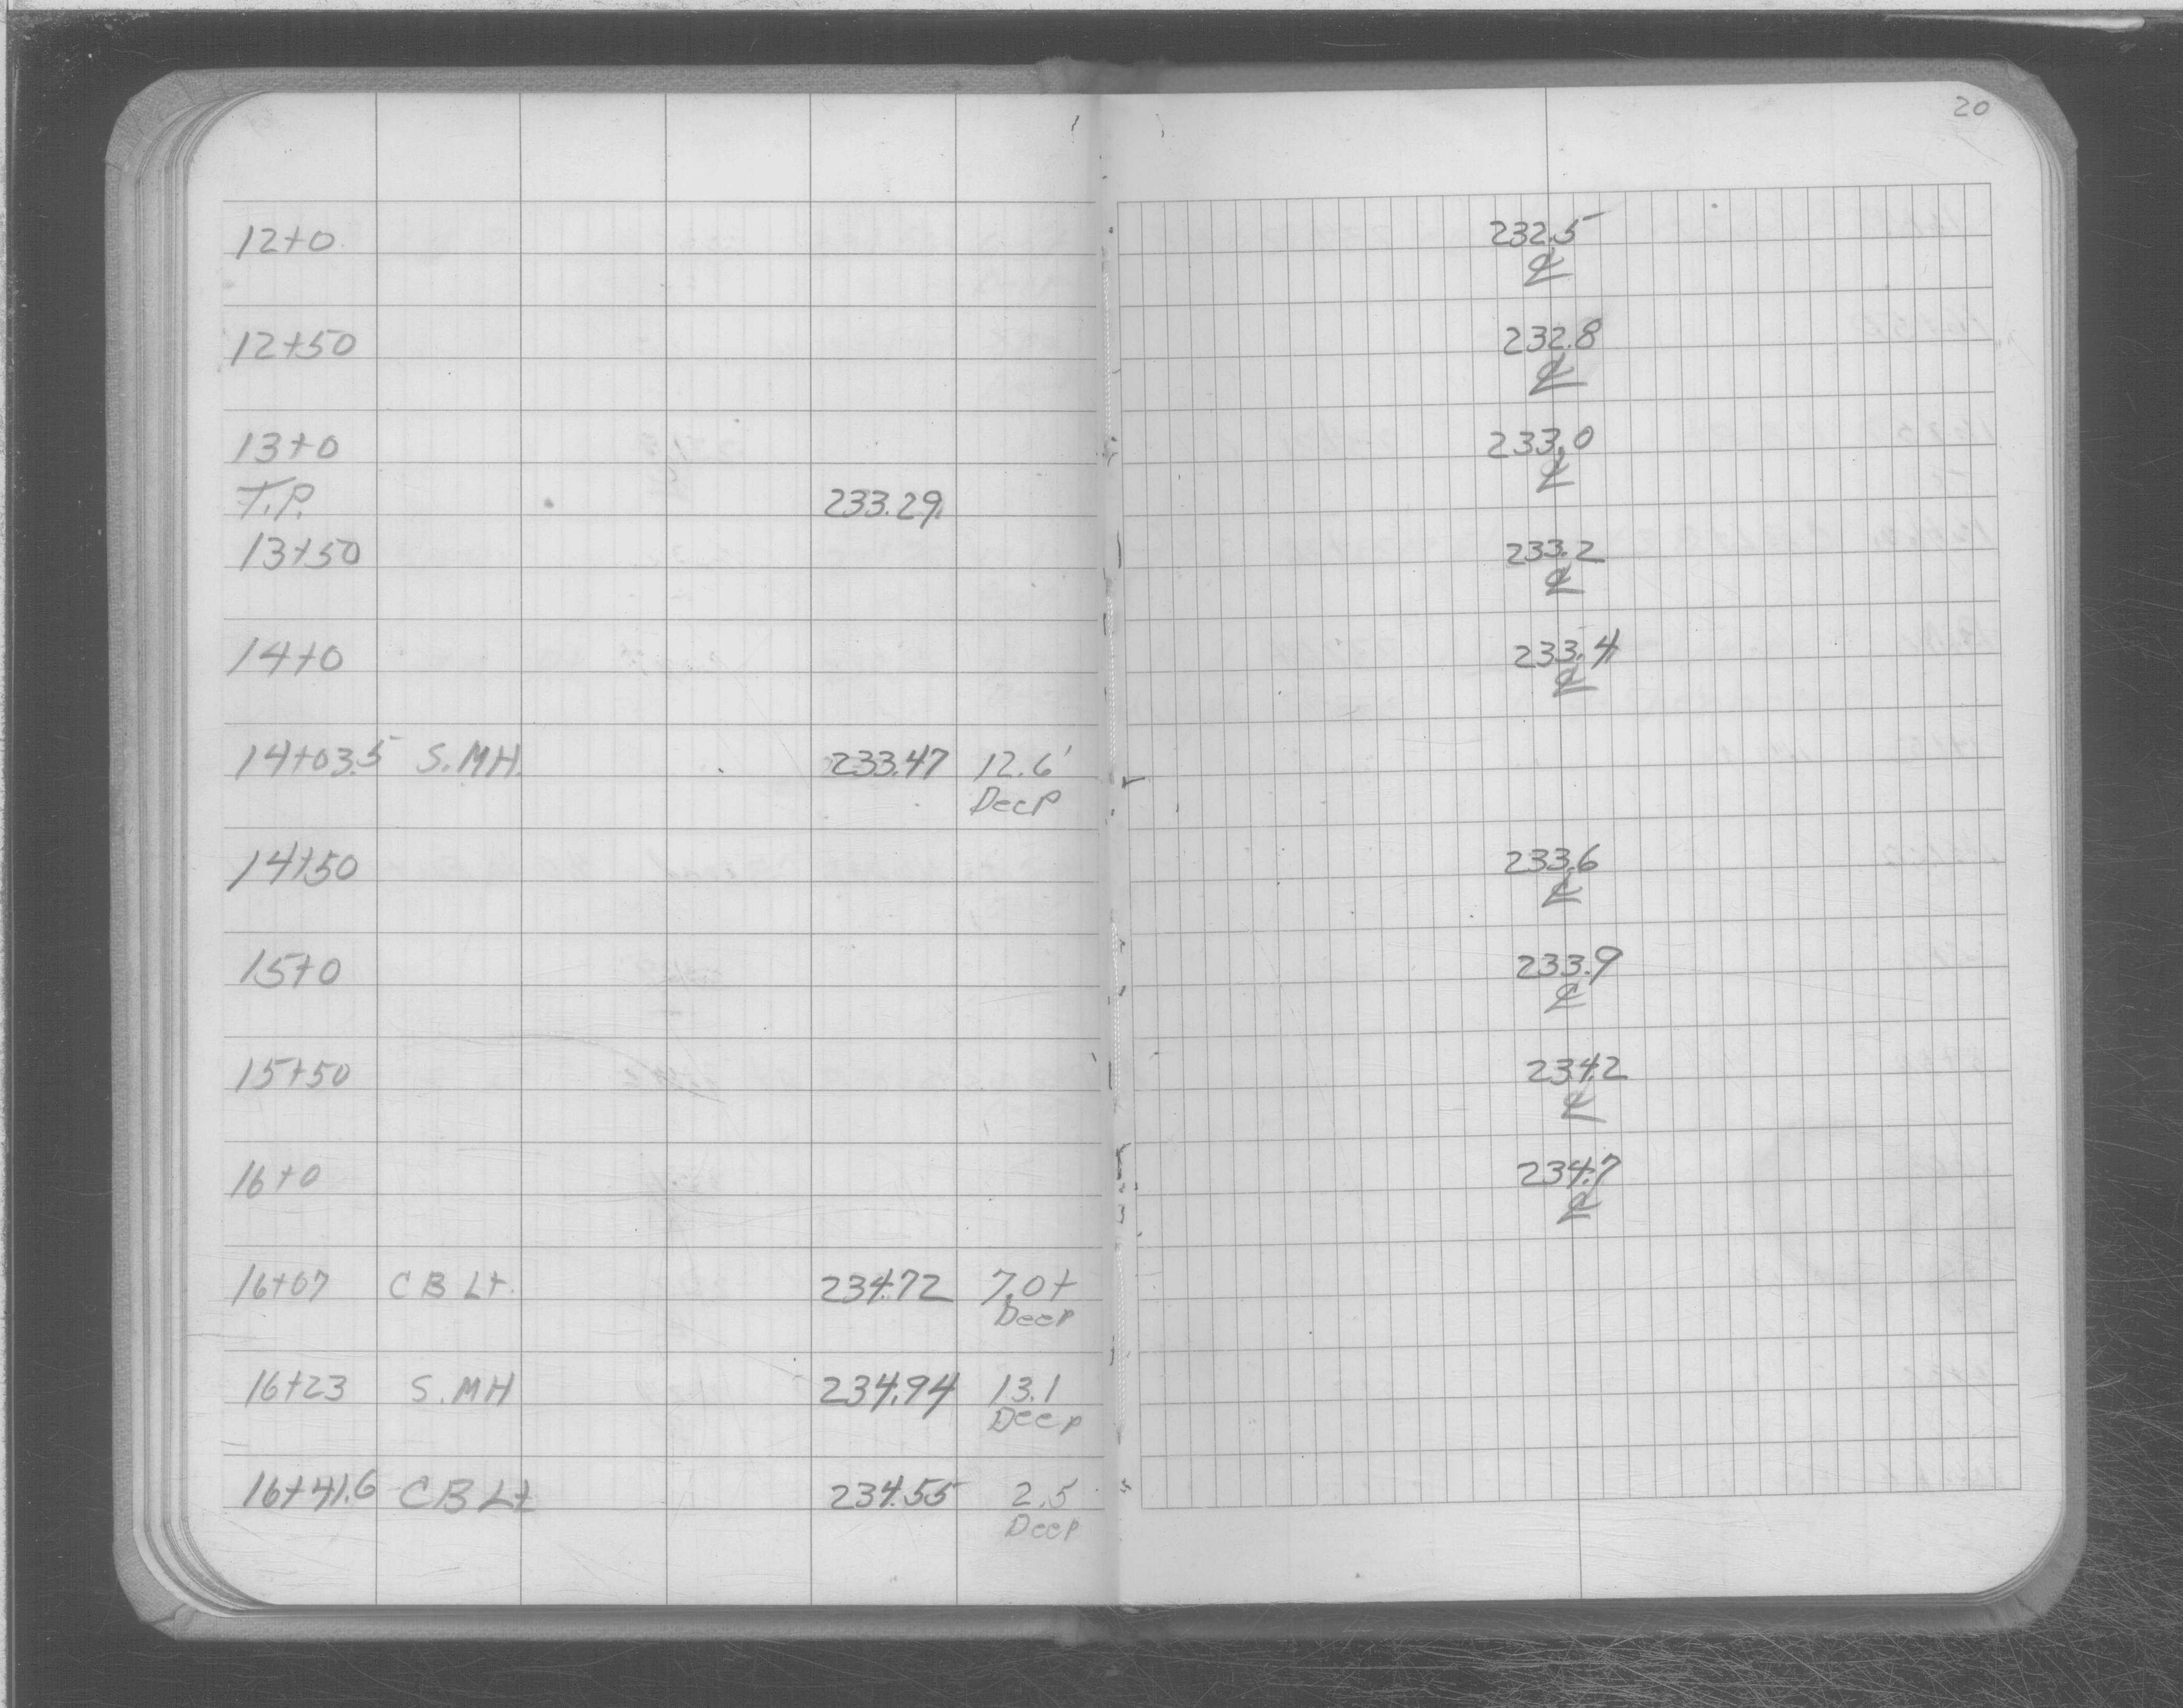 20
12+0 232.5
℄
12+50 232.8
℄
13+0 233.0
℄
T.P. 233.29
13+50 233.2
℄
14+0 233.4
℄
14+03.5 S.MH. 233.47 12.6'
Deep
14+50 233.6
℄
15+0 233.9
℄
15+50 234.2
℄
16+0 234.7
℄
16+07 CB Lt. 234.72 7.0+
Deep
16+23 S.MH 234.94 13.1
Deep
16+41.6 CB Lt 234.55 2.5
Deep